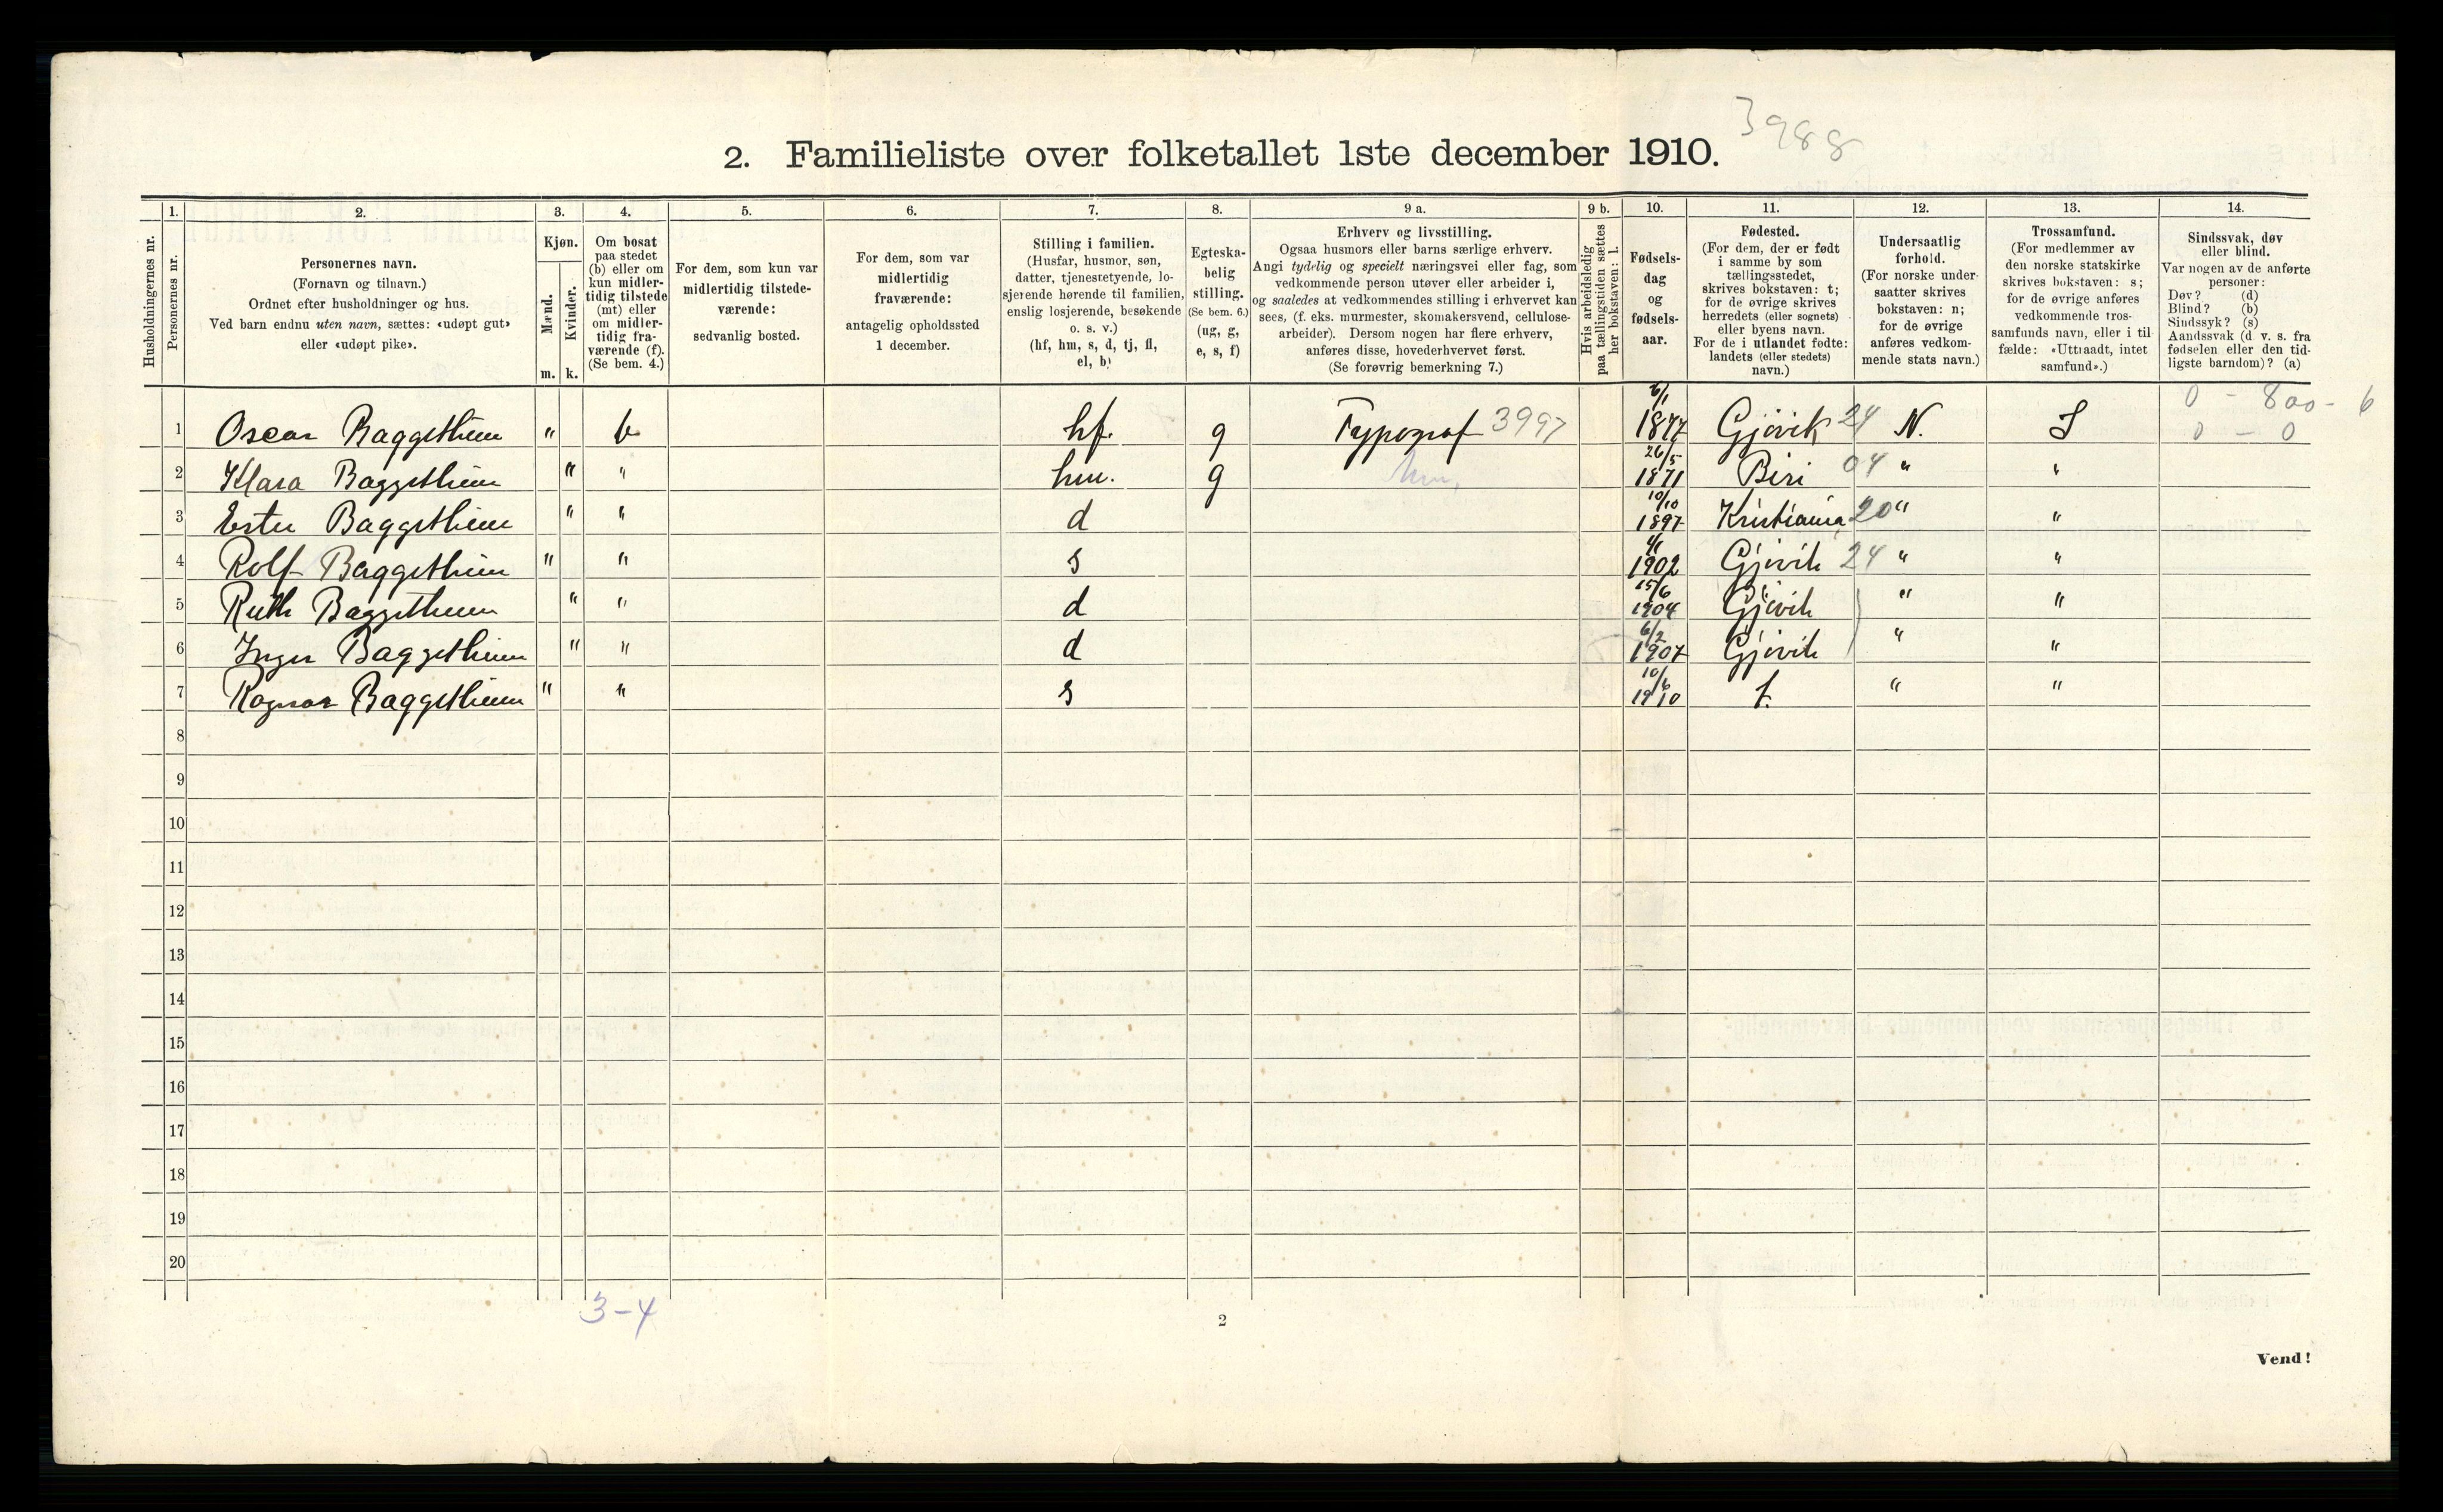 3988
2. Familieliste over folketallet 1ste december 1910.
Husholdningernes nr.
1.
Personernes nr.
2.
Personernes navn.
(Fornavn og tilnavn.)
Ordnet efter husholdninger og hus.
Ved barn endnu uten navn, sættes: «udøpt gut»
eller «udøpt pike».
3.
Kjøn.
Mænd.
Kvinder.
m. k.
4.
Om bosat
paa stedet
(b) eller om
kun midler-
tidig tilstede
(mt) eller
om midler-
tidig fra-
værende (f).
(Se bem. 4.)
5.
For dem, som kun var
midlertidig tilstede-
værende:
sedvanlig bosted.
6.
For dem, som var
midlertidig
fraværende:
antagelig opholdssted
1 december.
7.
Stilling i familien.
(Husfar, husmor, søn,
datter, tjenestetyende, lo-
sjerende hørende til familien,
enslig losjerende, besøkende
o. s. v.)
(hf, hm, s, d, tj, fl,
el, b)
8.
Egteska-
belig
stilling.
(Se bem. 6.)
(ug, g,
e, s, f)
9 a.
Erhverv og livsstilling.
Ogsaa husmors eller barns særlige erhverv.
Angi tydelig og specielt næringsvei eller fag, som
vedkommende person utøver eller arbeider i,
og saaledes at vedkommendes stilling i erhvervet kan
sees, (f. eks. murmester, skomakersvend, cellulose-
arbeider). Dersom nogen har flere erhverv,
anføres disse, hovederhvervet først.
(Se forøvrig bemerkning 7.)
9 b.
Hvis arbeidsledig
paa tællingstiden sættes
her bokstaven: l.
10.
Fødsels-
dag
og
fødsels-
aar.
11.
Fødested.
(For dem, der er født
i samme by som
tællingsstedet,
skrives bokstaven: t;
for de øvrige skrives
herredets (eller sognets)
eller byens navn.
For de i utlandet fødte:
landets (eller stedets)
navn.)
12.
Undersaatlig
forhold.
(For norske under-
saatter skrives
bokstaven: n;
for de øvrige
anføres vedkom-
mende stats navn.)
13.
Trossamfund.
(For medlemmer av
den norske statskirke
skrives bokstaven: s;
for de øvrige anføres
vedkommende tros-
samfunds navn, eller i til-
fælde: «Uttraadt, intet
samfund».)
14.
Sindssvak, døv
eller blind.
Var nogen av de anførte
personer:
Døv? (d)
Blind? (b)
Sindssyk? (s)
Aandssvak (d. v. s. fra
fødselen eller den tid-
ligste barndom)? (a)
0 - 800 - 6
0 - 0
1 Oscar Baggethun " b hf. g Typograf 3997 6/1 1877 Gjövik 24 N. S
2 Klara Baggethun " " hm. g hm. 26/5 1871 Biri 04 " "
3 Ester Baggethun " " d 10/10 1897 Kristiania 20 " "
4 Rolf Baggethun " " s 1902 Gjövik 24 " "
5 Ruth Baggethun " " d 15/6 1904 Gjövik " "
6 Inger Baggethun " " d 6/2 1907 Gjövik " "
7 Ragnar Baggethun " " s 10/6 1910 t. " "
8
9
10
11
12
13
14
15
16
17
18
19
20
3-4
2
Vend!